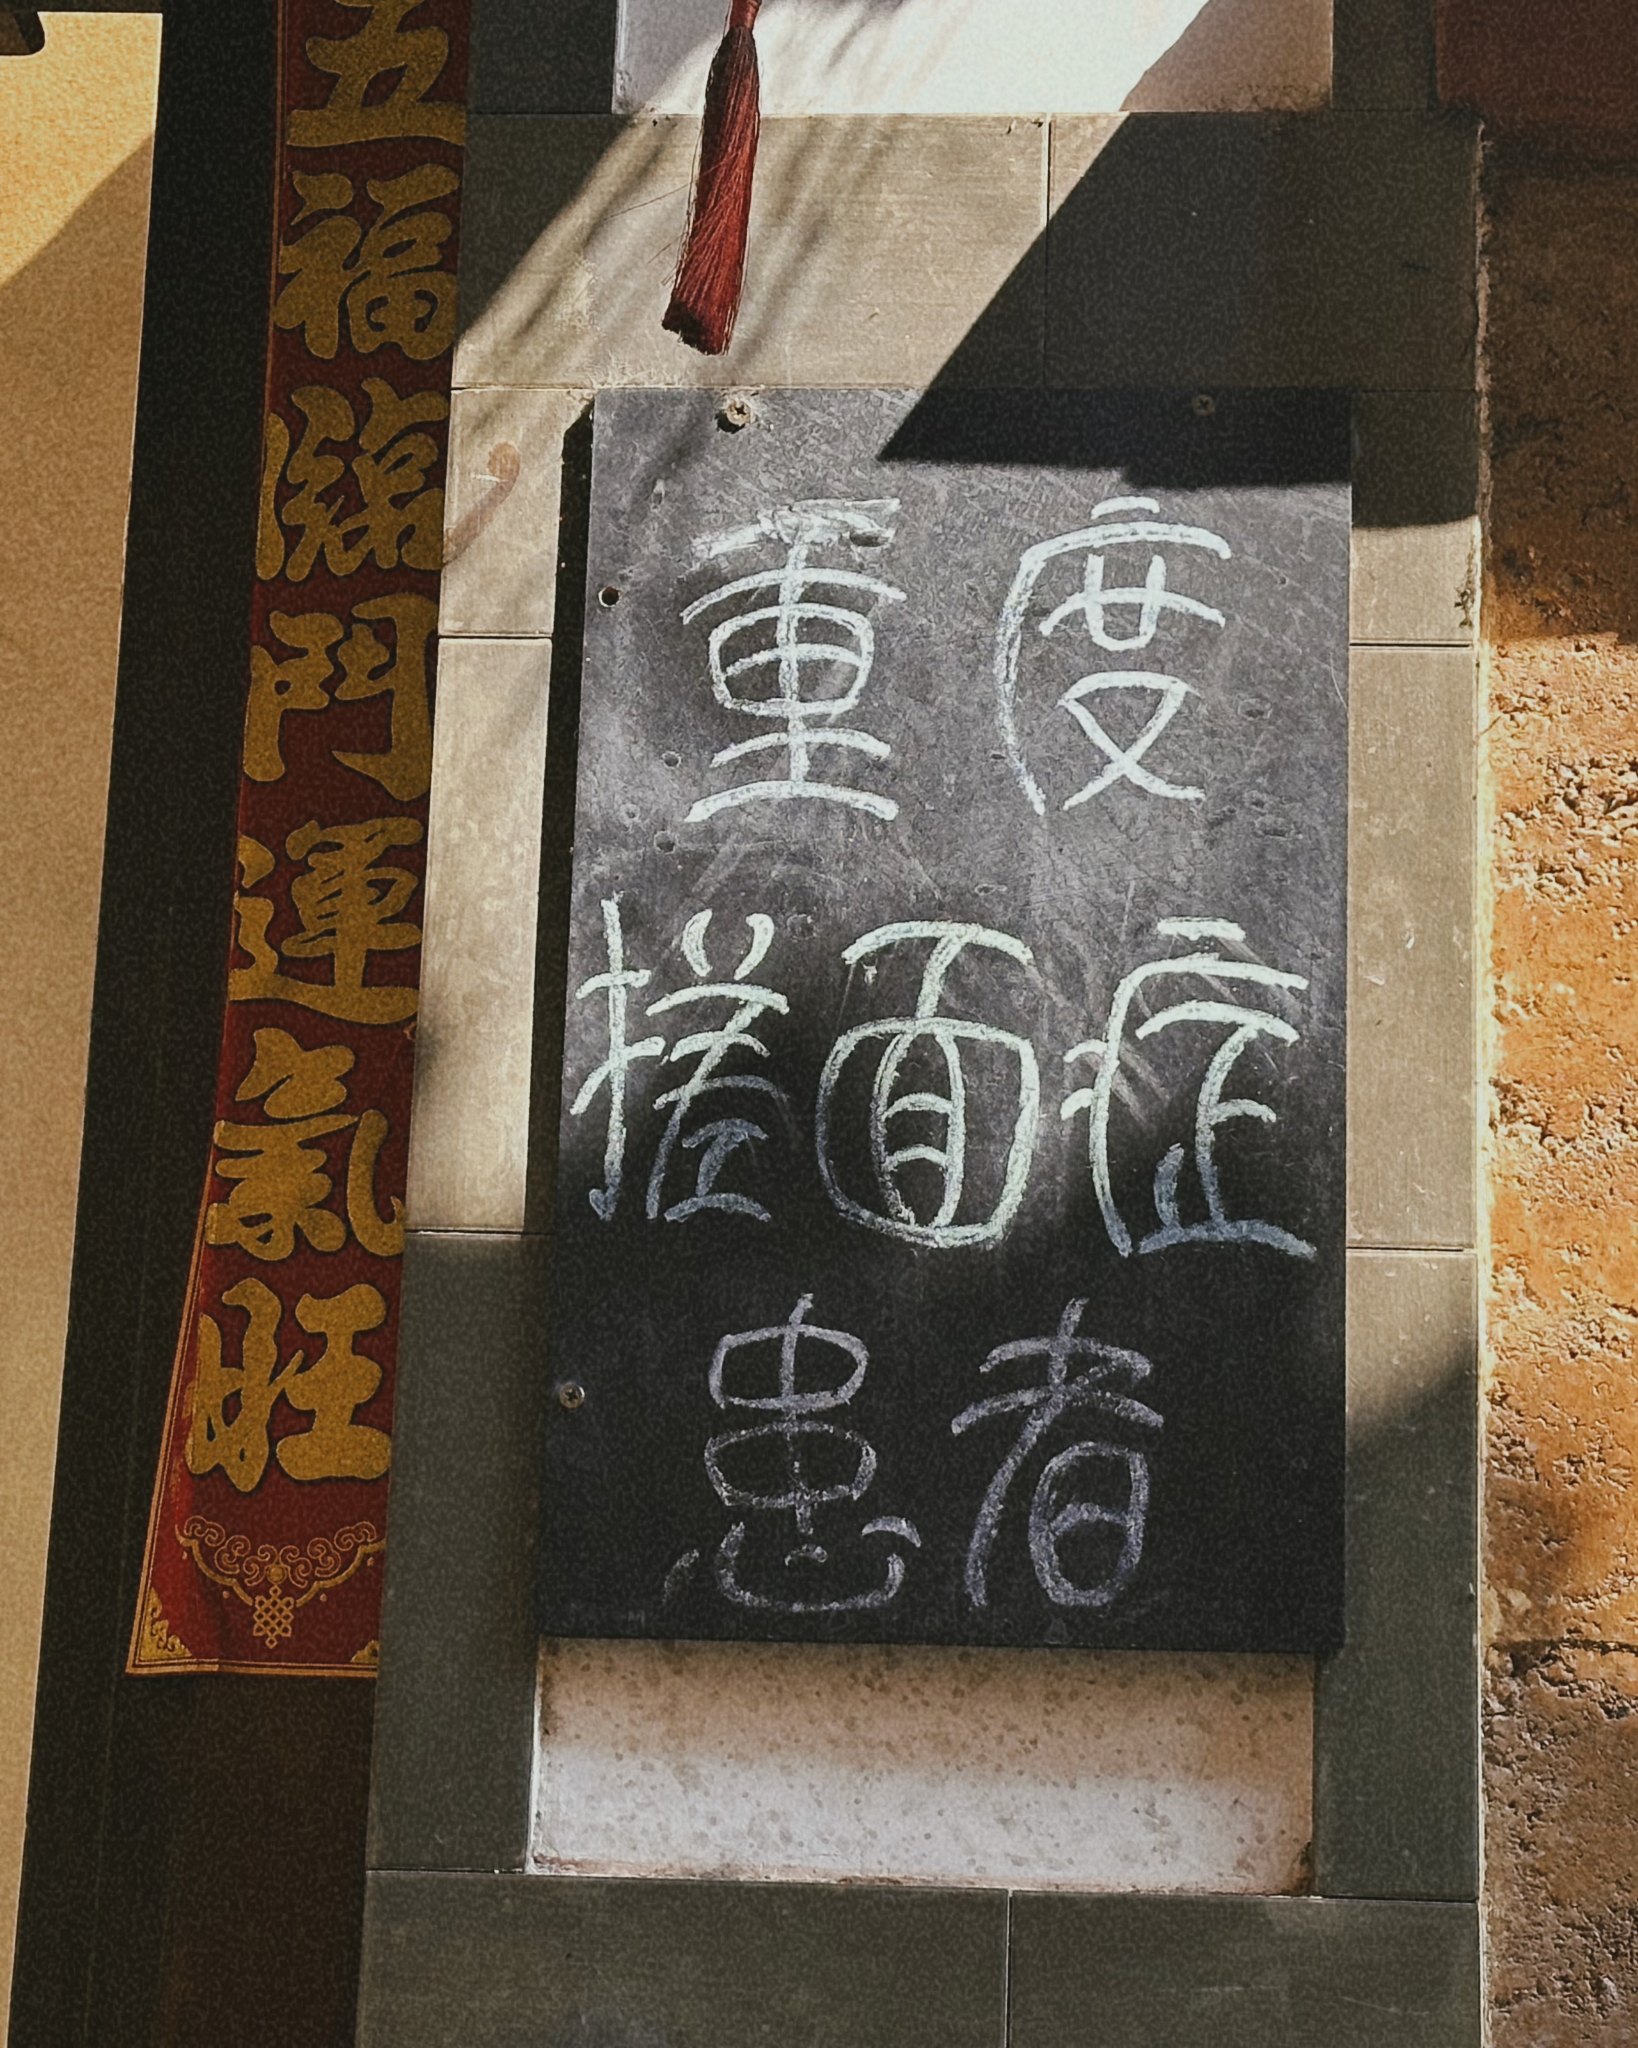 五福臨門運氣旺
重度
搓面症
患者